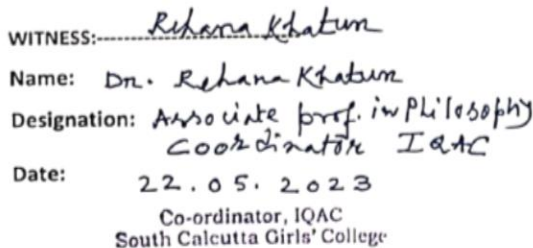 WITNESS:-------Rehana Khatun
Name: Dr. Rehana Khatun
Designation: Associate prof. in Philosophy
Coordinator IQAC
Date: 22.05.2023
Co-ordinator, IQAC
South Calcutta Girls' College